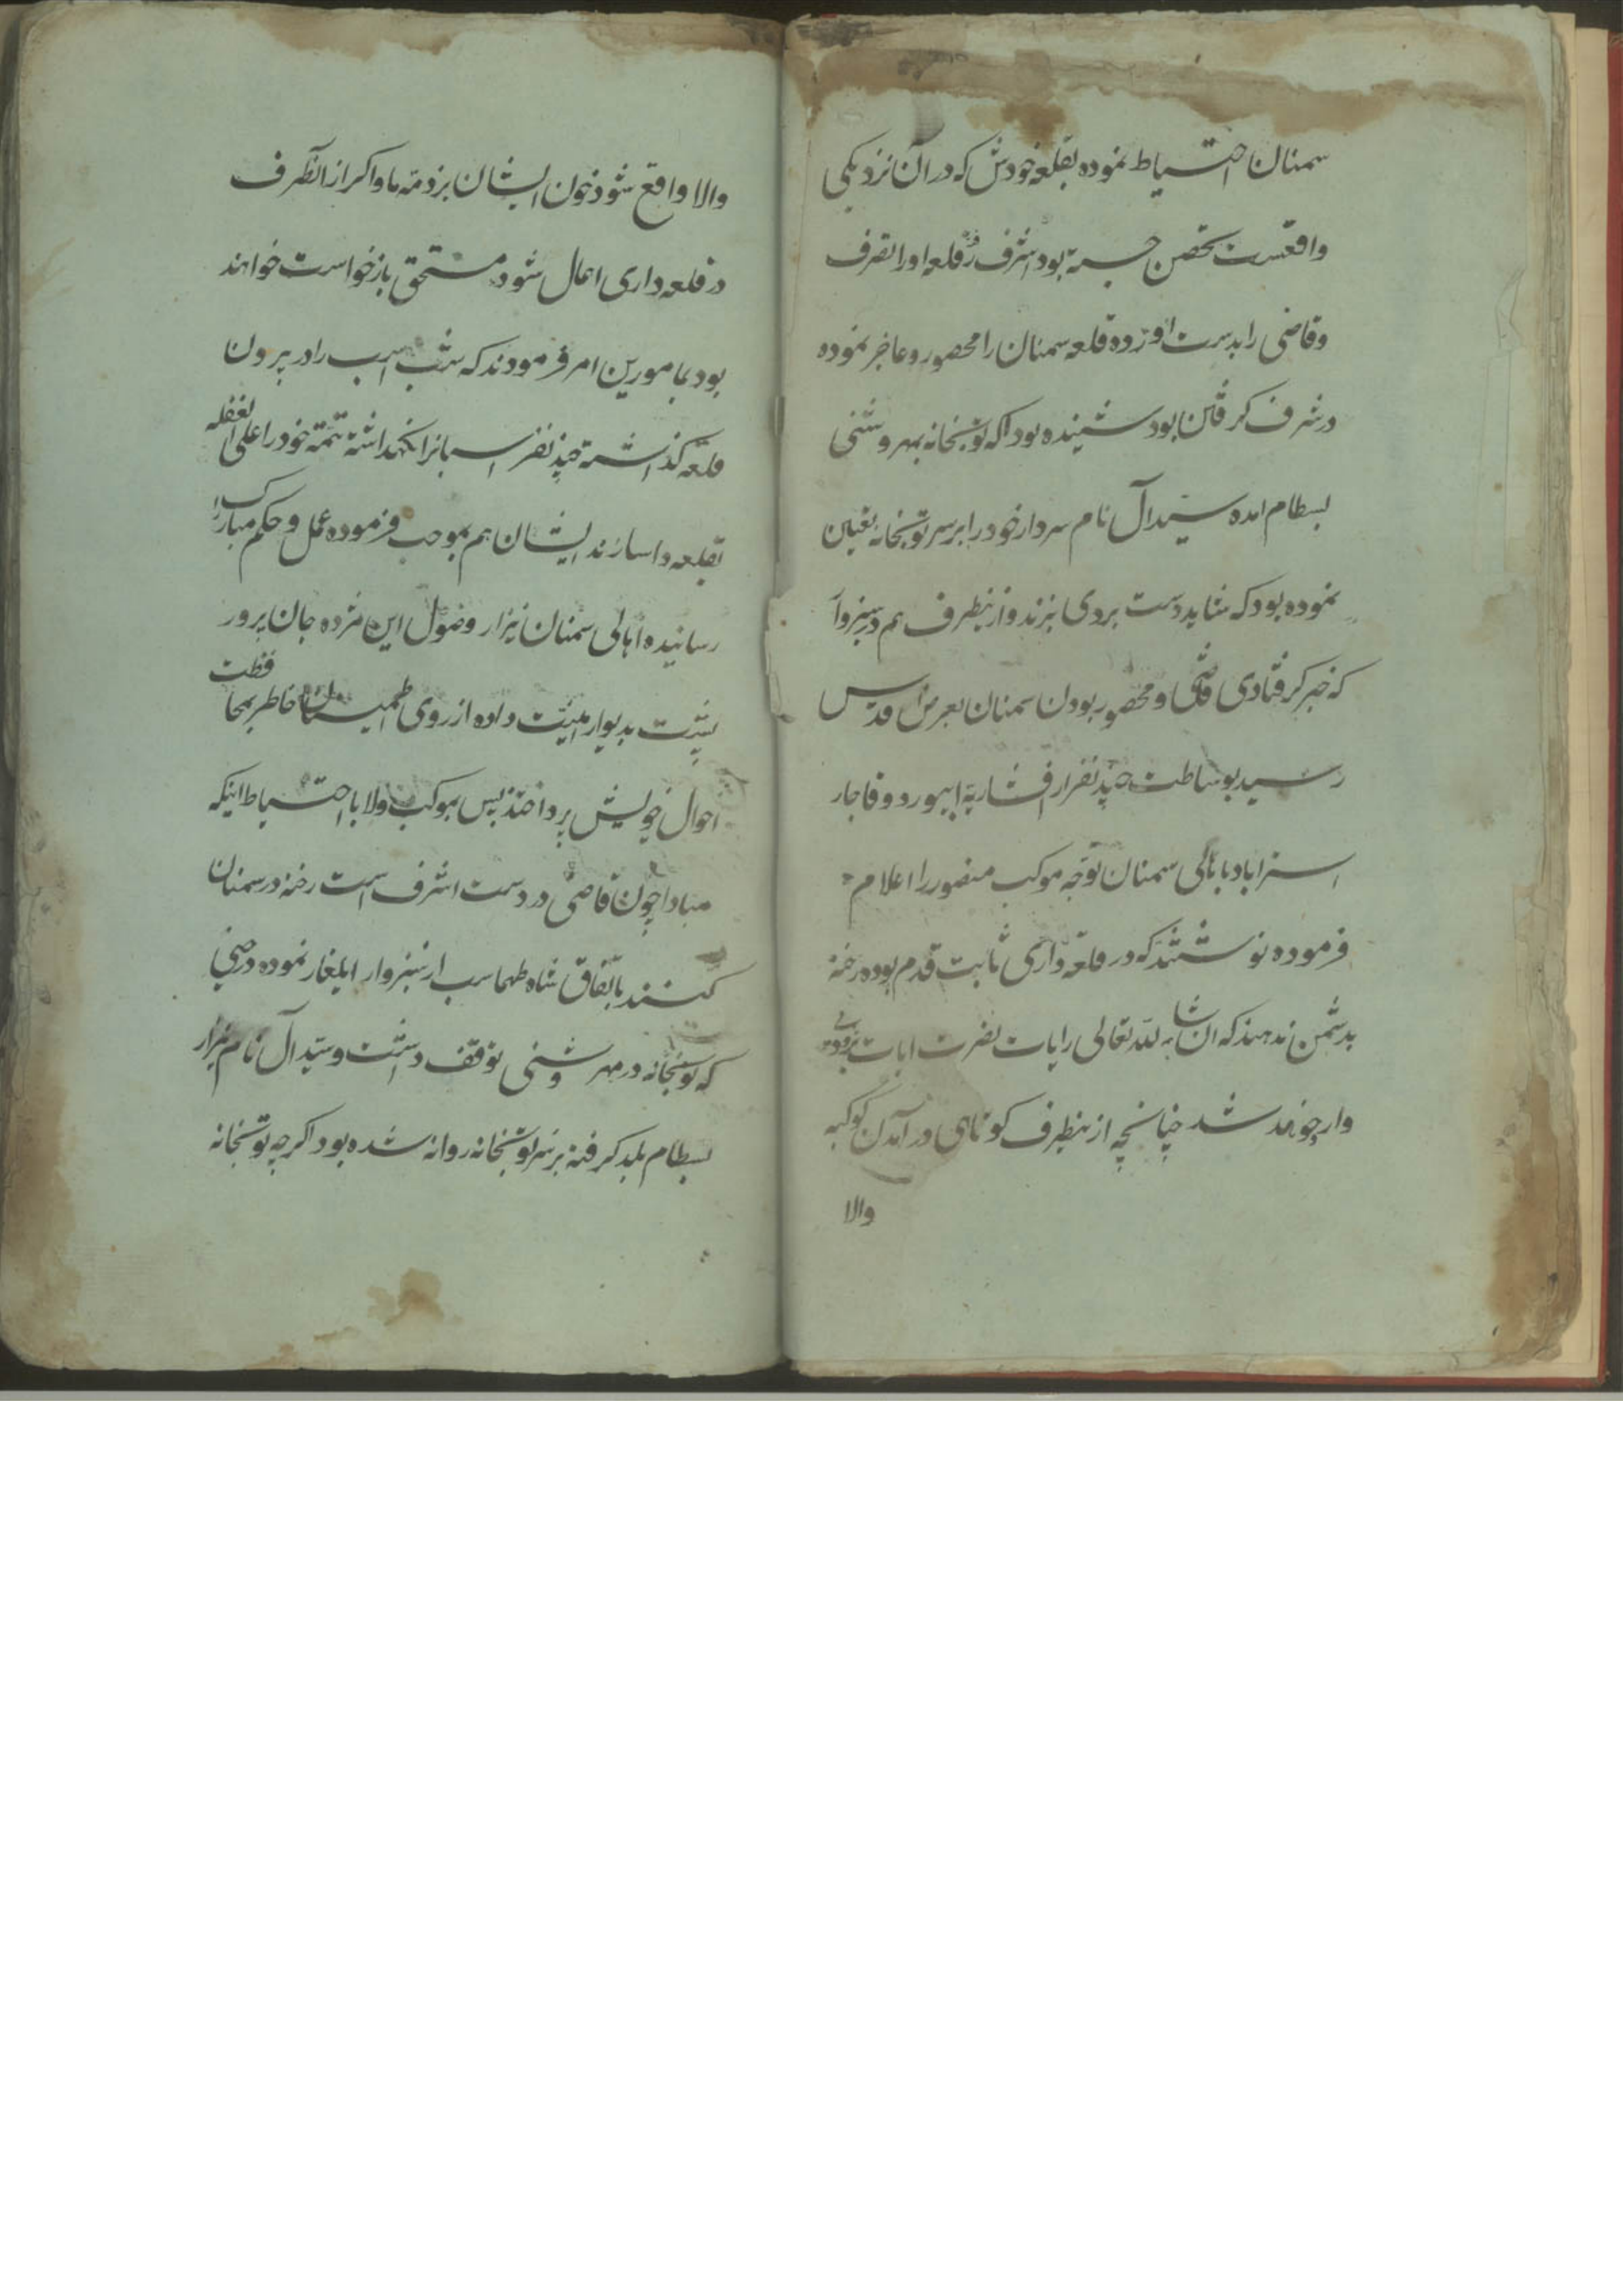 سمنان احتیاط نموده بقلعه خودش که در آن نزدیکی
واقعست تحصن جسته بود اشرف قلعه او را تصرف
و قاضی را بدست آورده قلعه سمنان را محصور و عاجز نموده
در شرف گرفتن بود شنیده بود که توپخانه بمهروشنی
بسطام امده سیدآل نام سردار خود را بر سر توپخانه تعیین
نموده بود که شاید دست بردی بزند و از ینطرف هم در سبزوار
که خبر گرفتاری قاضی و محصور بودن سمنان بعرض اقدس
رسید بوساطت چند نفر از افشاریه ابیورد و قاجار
استراباد باهالی سمنان توجه موکب منصور را اعلام
فرموده نوشتند که در قلعه داری ثابت قدم بوده رخنه
بدشمن ندهند که ان شاء لله تعالی رایات نصرت ایات بزودی
وارد خواهد شد چنانچه از ینطرف کوتاهی در آمدن کوکبه
والا
والا واقع شود خون ایشان بر ذمه ما و اکر از انطرف
در قلعه داری اهمال شود مستحق بازخواست خواهند
بود بمامورین امر فرمودند که شب اسب را در بیرون
قلعه گذاشته چند نفر اسبانرا نکهداشته تتمه خود را علی الغفله
بقلعه داسازند ایشان هم بموجب فرموده عمل و حکم مبارک را
رسانیده اهالی سمنان نیز از وصول این مژده جان پرور
پشت بدیوار امنیت داده از روی اطمینان خاطر بمحافظت
احوال خویش پرداختند پس موکب والا با احتیاط اینکه
مبادا چون قاضی در دست اشرف است رخنه در سمنان
کنند باتفاق شاه طهماسب از سبزوار ایلغار نموده در حینی
که توپخانه در مهروشنی توقف داشت و سیدآل نام نیز از
بسطام بلد گرفته بر سر توپخانه روانه شده بود اکرچه توپخانه